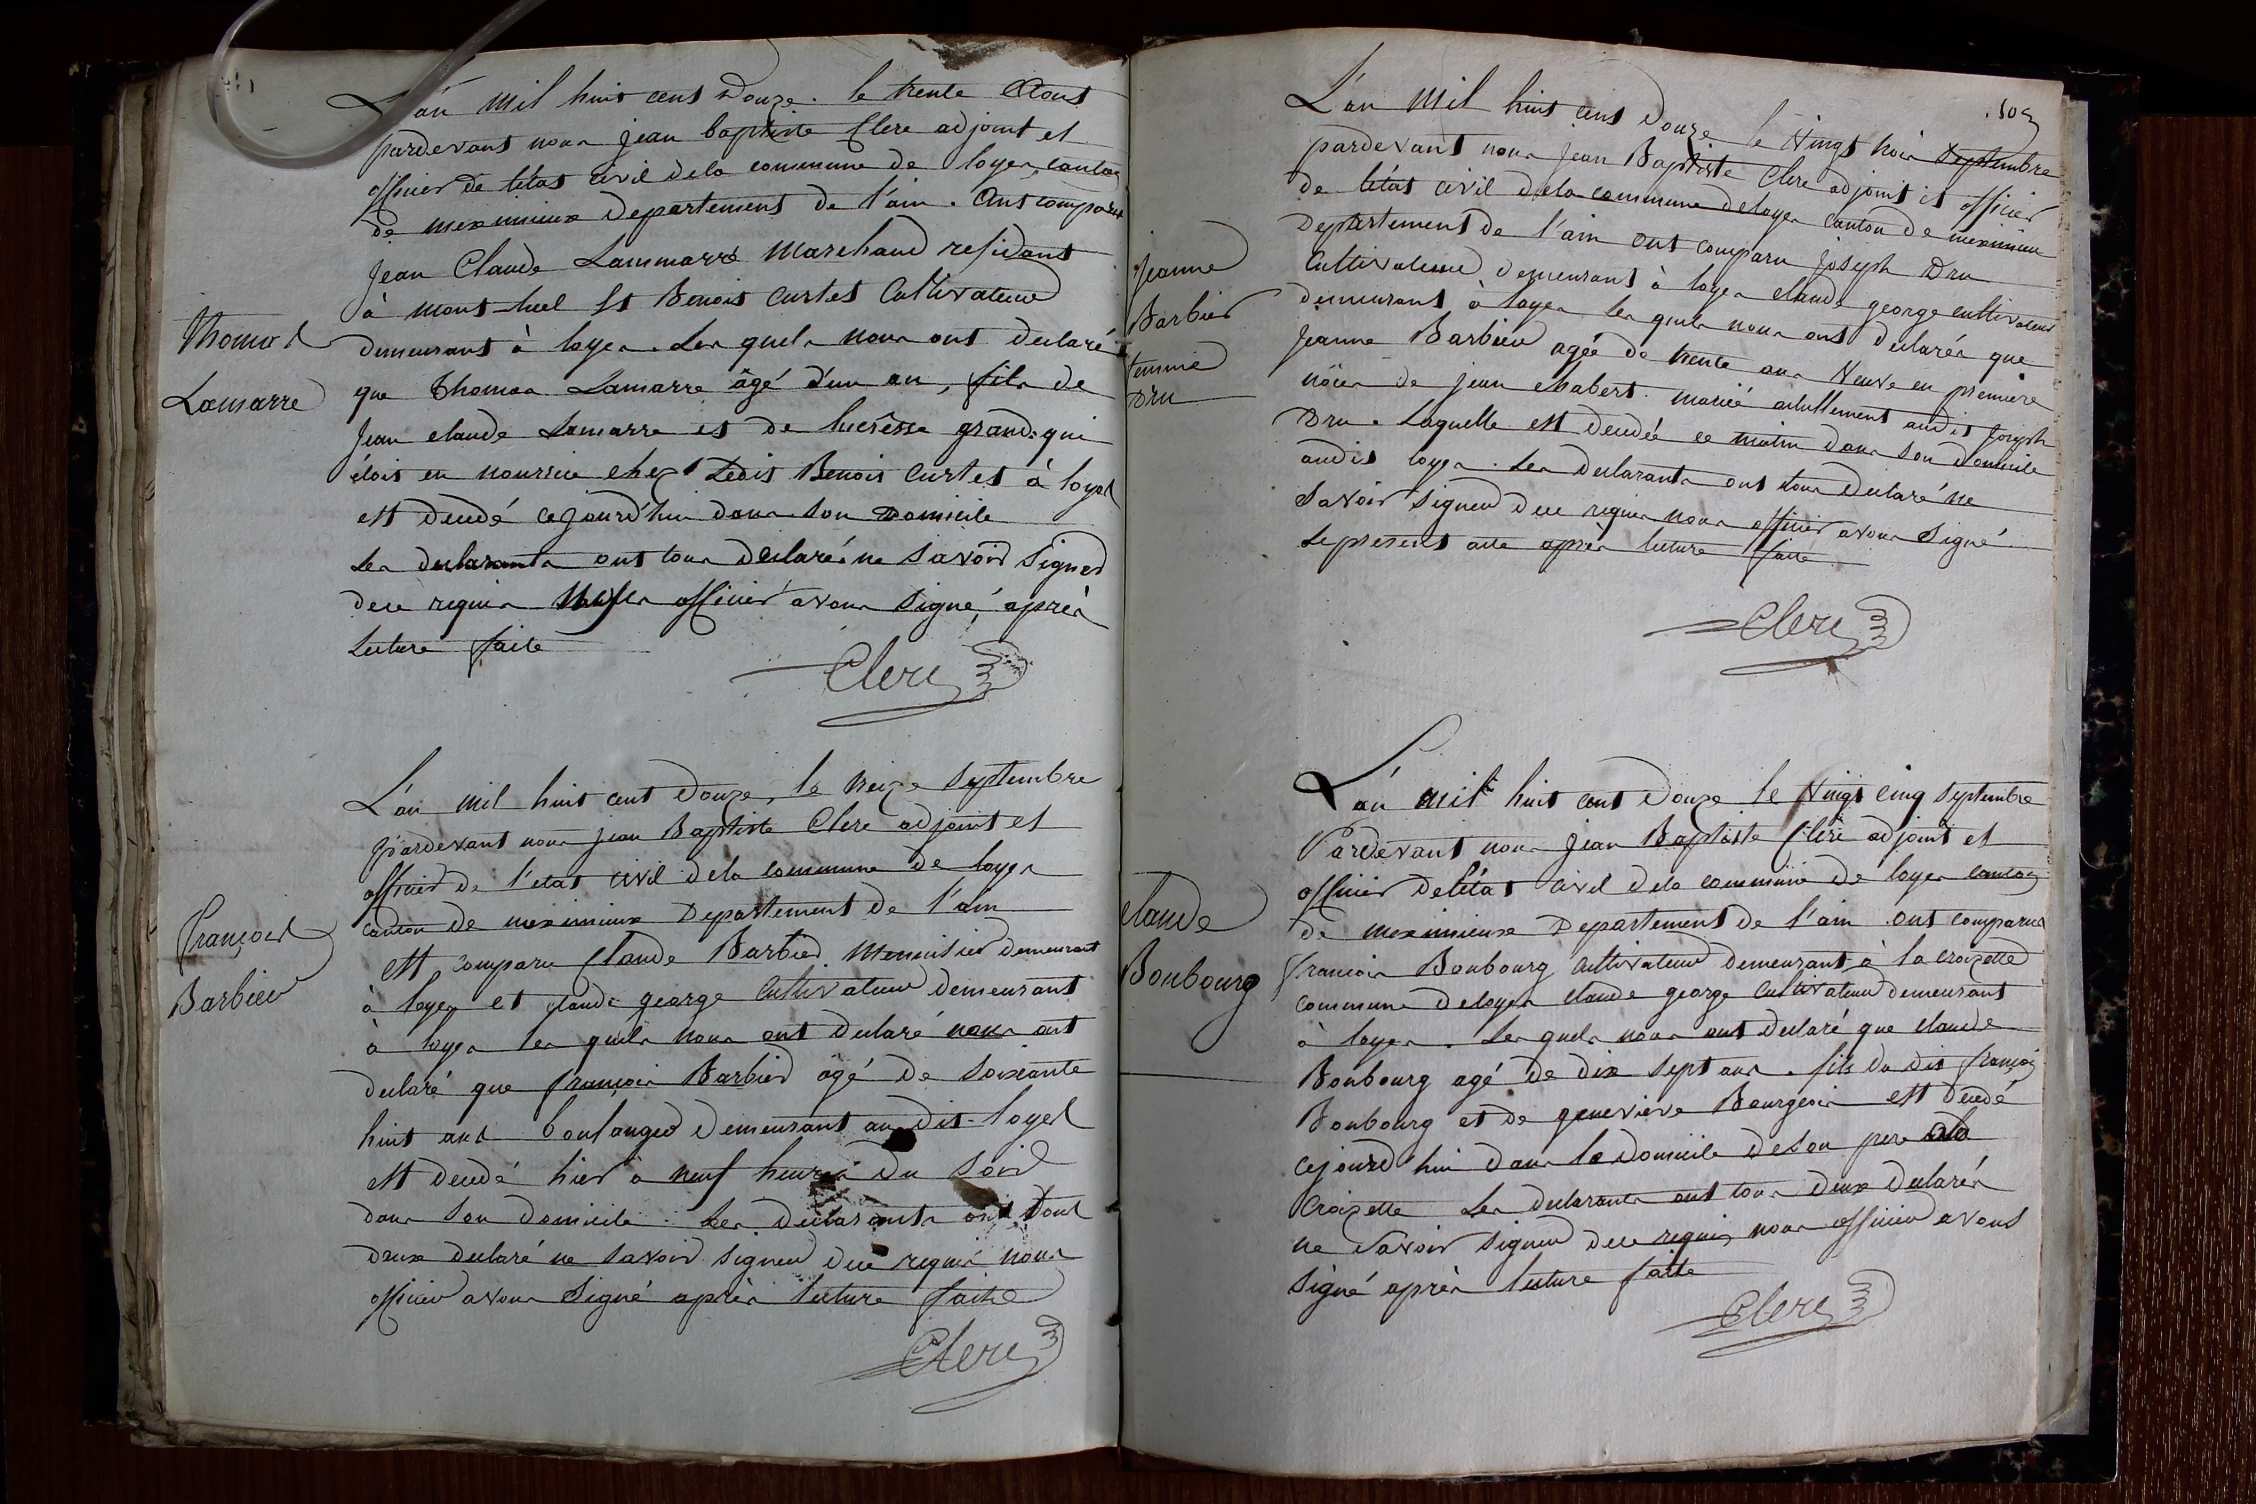 L'an mil huit cent Douze. le trente Aout
pardevant nous jean baptiste Clerc adjoint et
officier de l'état civil dela commune de loyes, canton
de meximieux Departement de l'ain. Ont comparu
jean Claude Lammarre Marchand residant
à mont-luel Et Benoit Curtet Cultivateur
Thomas
demeurant à loyes. Les quels nous ont declarés
Lamarre
que Thomas Lamarre âgé d'un an, fils de
jean claude Lamarre et de lucresse grand. qui
étoit en nourrice chez Ledit Benoit Curtet à loyes
est decedé cejourd'hui dans son Domicile
Les declarants ont tous declarés ne savoir signer
dece requis officier avons signé, après
lecture faite
Clerc
L'an mil huit cent Douze, le treize septembre
pardevant nous jean Baptiste Clerc adjoint et
officier de l'etat civil dela commune de loyes
canton de meximieux Departement de l'ain
François
est comparu Claude Barbier Menuisier demeurant
Barbier
à loyes et claude george Cultivateur demeurant
à loyes les quels nous ont declaré nous ont
declaré que françois Barbier agé de soixante
huit ans boulanger demeurant au dit-loyes
est decedé hier à neuf heures du soir
dans son domicile. Les declarants ont tous
deux declaré ne savoir signer dece requis nous
officier avons signé après lecture faite
Clerc
L'an mil huit cens Douze le Vingt trois septembre
pardevant nous jean Baptiste Clerc adjoint et officier
de l'état civil dela commune deloyes canton de meximieu
Jeanne
Departement de l'ain ont comparu joseph Dru
Barbier
Cultivateur demeurant à loyes claude george cultivateur
demeurant à loyes les quels nous ont declarés que
femme
jeanne Barbier agée de trente ans Veuve en premiere
Dru
nôces de jean chabert. mariée actuellement audit joseph
Dru. Laquelle est decedée ce matin dans son domicile
audit loyes. Les declarants ont tous declaré ne
savoir signer dece requis nous officier avons signé
le present acte après lecture faite
Clerc
L'an mil huit cent Douze le Vingt cinq septembre
Pardevant nous jean Baptiste Clerc adjoint et
officier deletat civil dela commune de loyes canton
Claude
de meximieux Departement de l'ain ont comparus
Bonbourg
francois Bonbourg cultivateur demeurant à la croizette
commune deloyes claude george cultivateur demeurant
à loyes. Les quels nous ont declaré que claude
Bonbourg agé de dix sept ans. fils du dit françois
Bonbourg et de genevieve Bourgeois est decedé
cejourd'hui dans le domicile deson pere ala
Croizette Les declarants ont tous deux declarés
ne savoir signer dece requis nous officier avons
signé après lecture faite
Clerc